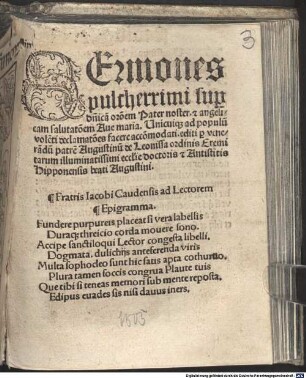 3
SErmones
pulcherrimi sup
dnicã orõem Pater noster. & angeli
cam salutatõem Aue maria. Unicuiqz ad populũ
volẽti exclamatões facere accõmodati. editi p vene
rãdũ patrẽ Augustinũ de Leonissa ordinis Eremi
tarum illuminatissimi ecclie doctoris & Antistitis
Hipponensis beati Augustini.
¶ Fratris Iacobi Caudensis ad Lectorem
¶ Epigramma.
Fundere purpureis placeat si vera labellis
Duraqz threicio corda mouere sono.
Accipe sanctiloqui Lector congesta libelli.
Dogmata. dulichijs anteferenda viris
Multa sophocleo sunt hic satis apta cothurno.
Plura tamen soccis congrua Plaute tuis
Que tibi si teneas memori sub mente reposta.
Edipus euades sis nisi dauus iners.
1505